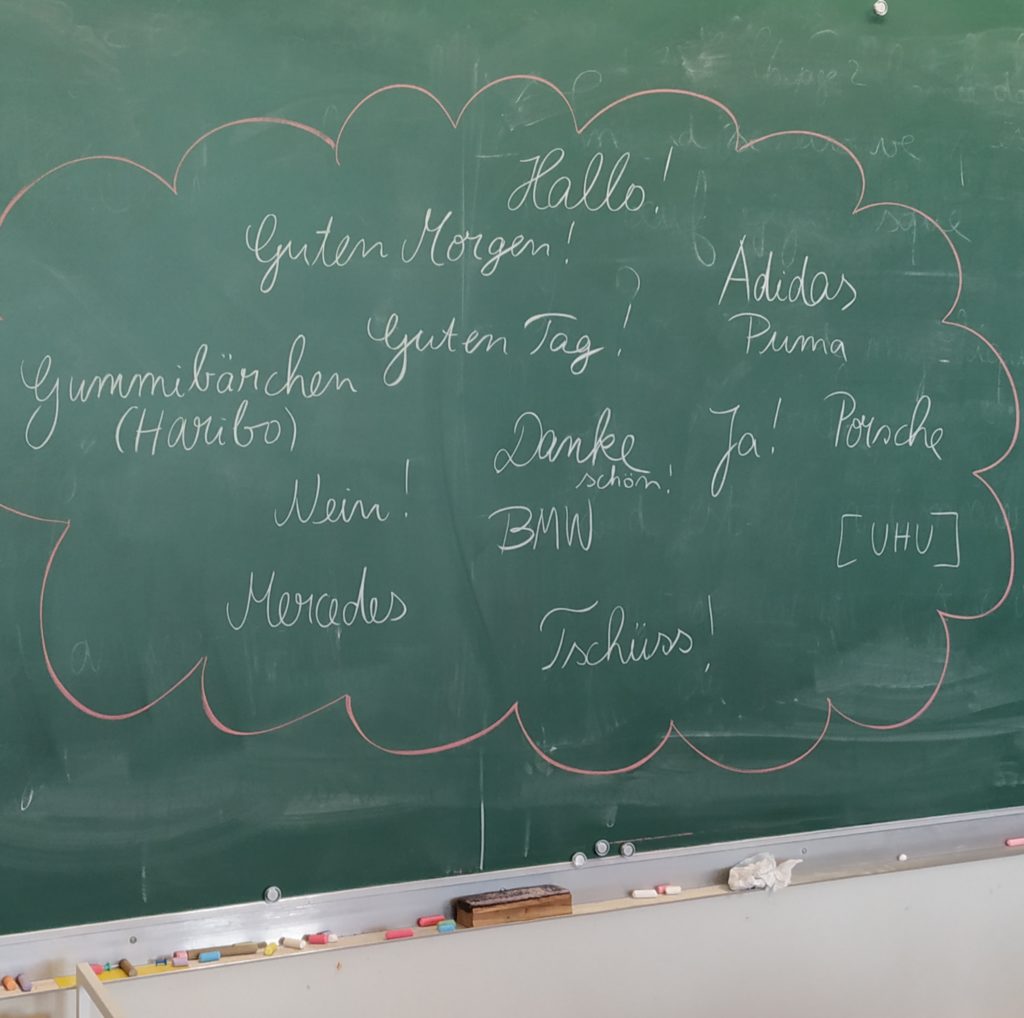 Hallo!
Guten Morgen!
Adidas
Guten Tag!
Puma
Gummibärchen
(Haribo)
Danke
schön!
Ja!
Porsche
Nein!
BMW
[UHU]
Mercedes
Tschüss!